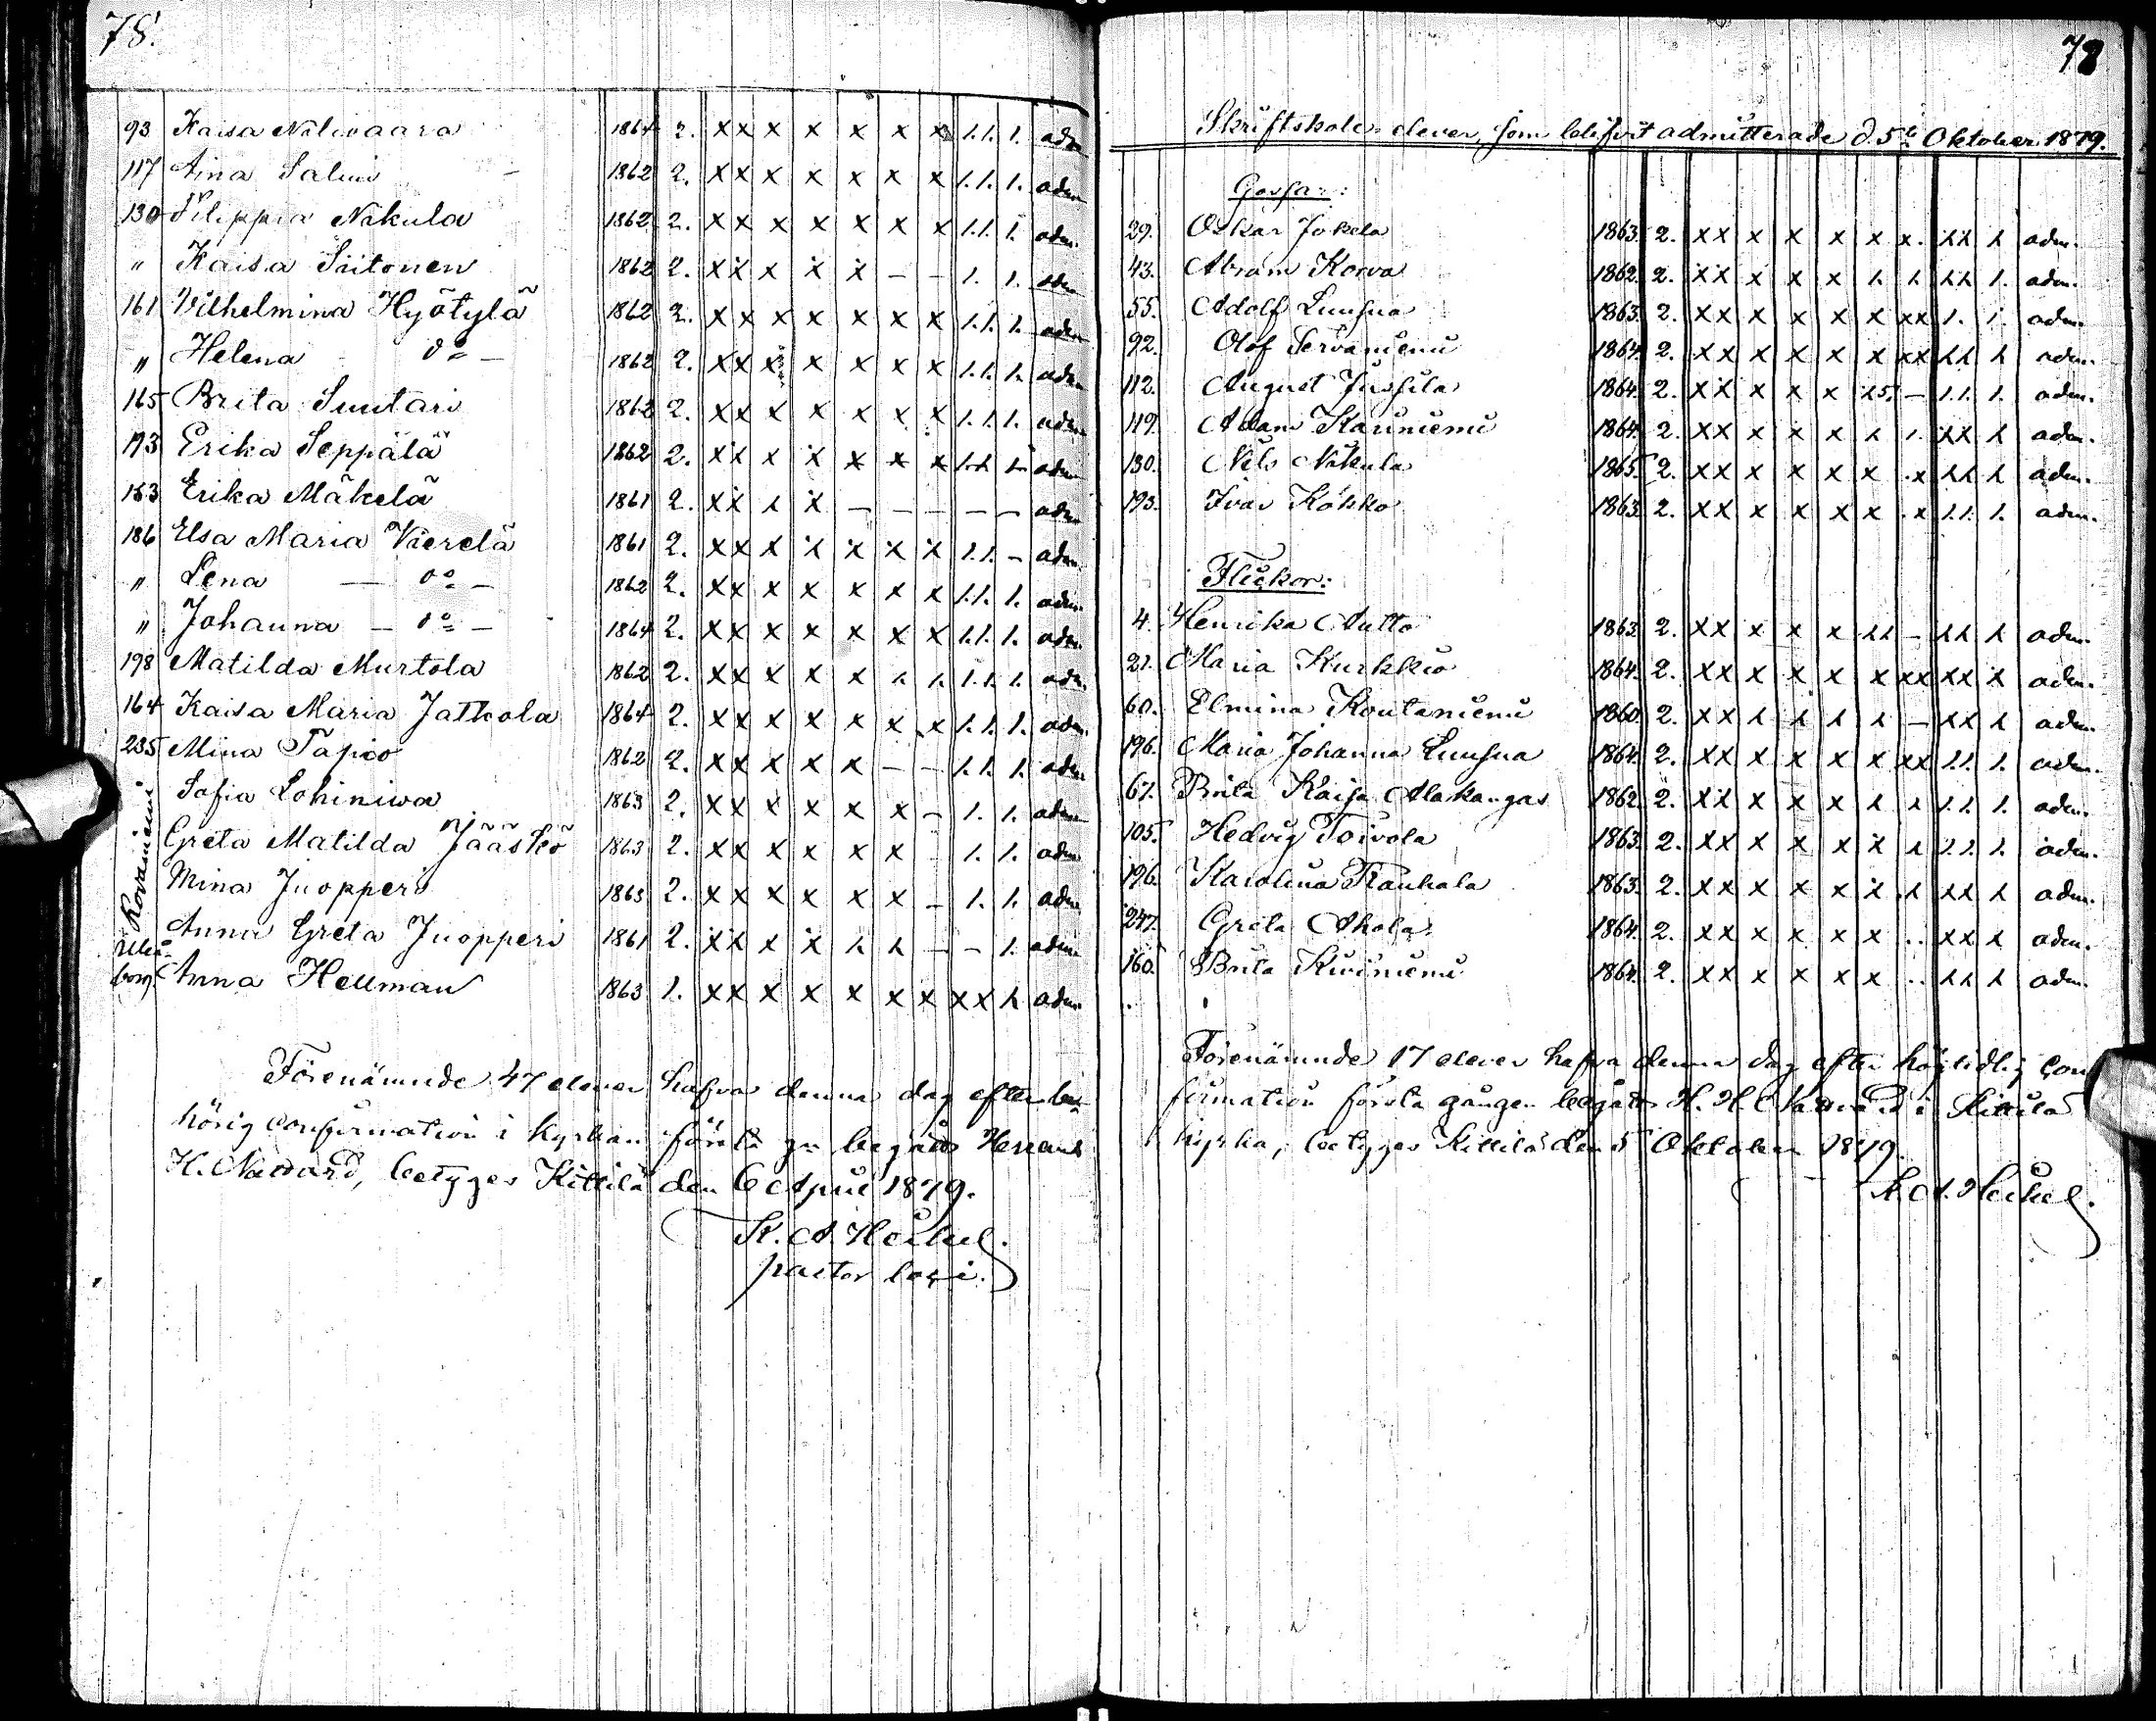 78.
93 Kaisa Nälivaara 1864 2. x x x x x x x 1. 1. 1. adm
117 Aina Salmi 1862 2. x x x x x x x 1. 1. 1. adm
130 Filippia Näkula 1862 2. x x x x x x x 1. 1. 1. adm.
" Kaisa Siitonen 1862 2. x x x x x – – 1. 1. adm
161 Vilhelmina Hyötylä 1862 2. x x x x x x x 1. 1. 1. adm
" Helena do – 1862 2. x x x x x x x 1. 1. 1. adm
165 Brita Suutari 1862 2. x x x x x x x 1. 1. 1. adm
193 Erika Seppälä 1862 2. x x x x x x x 1. 1. 1. adm
153 Erika Mäkelä 1861 2. x x x x – – – – – adm
186 Elsa Maria Vierelä 1861 2. x x x x x x x 1. 1. – adm.
" Lena — do – 1862 2. x x x x x x x 1. 1. 1. adm.
" Johanna – do – 1864 2. x x x x x x x 1. 1. 1. adm.
198 Matilda Murtola 1862 2. x x x x x 1. 1. 1. 1. 1. adm.
164 Kaisa Maria Jatkola 1864 2. x x x x x x x 1. 1. 1. adm.
235 Mina Tapio 1862 2. x x x x x – – 1. 1. 1. adm
Rovaniemi
Sofia Lohiniwa 1863 2. x x x x x x – 1. 1. adm
Greta Matilda Jääskö 1863 2. x x x x x x – 1. 1. adm
Mina Juopperi 1863 2. x x x x x x – 1. 1. adm
Anna Greta Juopperi 1861 2. x x x x 1. 1. – – 1. adm
Uleå-
borg Anna Hellman 1863 1. x x x x x x x x x 1. adm.
Förenämnde 47 elever hafva denna dag efter be-
hörig confirmation i kyrkan första gn begått Herrans
H. Nattvard, betyges Kittilä den 6 April 1879.
K. A. Heikel.
pastor loci.
78
Skriftskole elever, som blifvit admitterade d. 5te Oktober 1879.
Gossar:
29. Oskar Jokela 1863. 2. x x x x x x x. 1. 1. 1 adm.
43. Abram Korva 1862. 2. x x x x x 1. 1 1. 1. 1. adm.
55. Adolf Luusua 1863. 2. x x x x x x xx 1. 1. adm.
92. Olof Servaniemi 1864. 2. x x x x x x xx 1. 1. 1 adm.
112. August Jussila 1864. 2. x x x x x 1.5. – 1. 1. 1. adm.
119. Adam Kauniemi 1864. 2. x x x x x 1 1. x x 1 adm.
130. Nils Näkula 1865. 2. x x x x x x . x 1. 1. 1 adm.
193. Ivar Kökkö 1863. 2. x x x x x x . x 1. 1. 1. adm.
Flickor:
4. Henrika Autto 1863. 2. x x x x x 1. 1. – 1. 1. 1 adm.
21. Maria Kurkkio 1864. 2. x x x x x x xx x x x adm.
60. Elmina Koutaniemi 1860. 2. x x 1 1 1 1 – x x 1 adm.
196. Maria Johanna Luusua 1864. 2. x x x x x x xx 1. 1. 1. adm.
67. Brita Kaisa Alakangas 1862. 2. x x x x x 1 1 1. 1. 1. adm.
105. Hedvig Toivola 1863. 2. x x x x x x 1 1. 1. 1. adm.
196. Karolina Raukala 1863. 2. x x x x x x . 1 x x 1 adm.
247. Greta Ahola 1864. 2. x x x x x x . . x x 1 adm.
160. Brita Kiviniemi 1864. 2. x x x x x x . . 1. 1. 1 adm.
Förenämnde 17 elever hafva denna dag efter högtidlig con
firmation första gången begått H. H. Nattvard i Kittilä
kyrka, betyges Kittilä den 5 Oktober 1879.
K. A. Heikel.